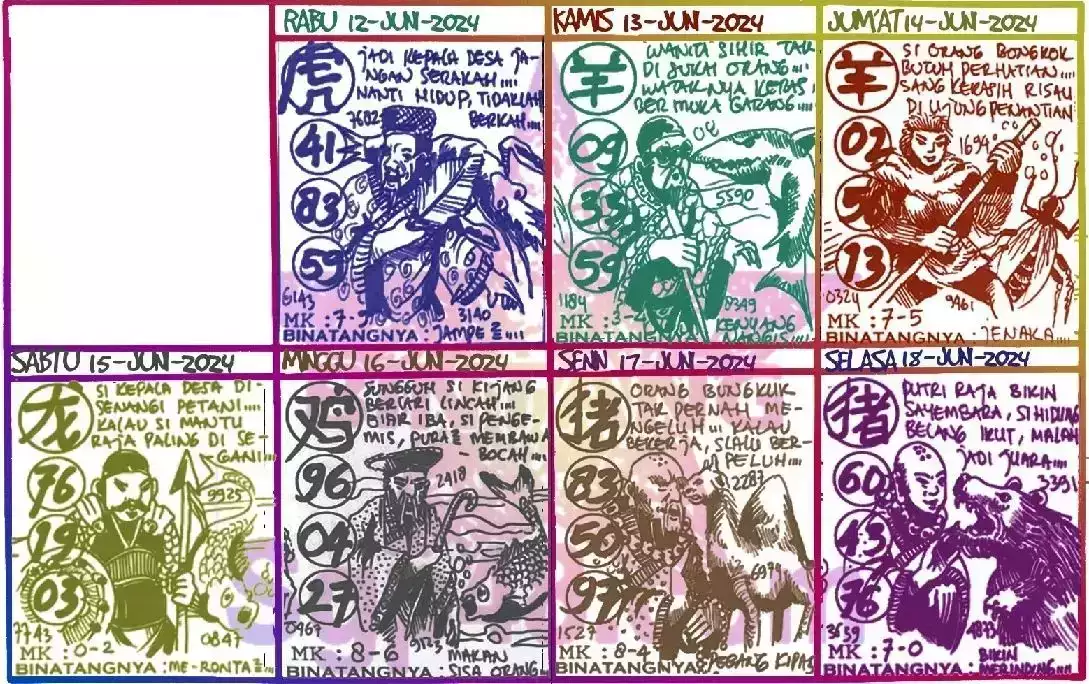 RABU 12-JUN-2024
虎
JADI KEPALA DESA JA-
NGAN SERAKAH....
NANTI HIDUP, TIDAKLAH
BERKAH....
7602
41
83
59
6143
3140
MK : 7-
BINATANGNYA : JAMPE 2....
KAMIS 13-JUN-2024
羊
WANITA SIHIR TAK
DI SUKAI ORANG....
WATAKNYA KERAS,
BER MUKA GARANG....
09
33
59
5590
1184
9349
MK : 3-
BINATANGNYA : KENYANG
NANGIS....
JUM'AT 14-JUN-2024
羊
SI ORANG BONGKOK
BUTUH PERHATIAN....
SANG KEKASIH RISAU
DI UJUNG PENANTIAN
1694
02
50
13
0324
9461
MK : 7-5
BINATANGNYA : JENAKA....
SABTU 15-JUN-2024
龙
SI KEPALA DESA DI-
SENANGI PETANI....
KALAU SI MANTU
RAJA PALING DI SE-
GANI....
76
19
03
9925
7743
0847
MK : 0-2
BINATANGNYA : ME-RONTA 2....
MINGGU 16-JUN-2024
鸡
SUNGGUH SI KIJANG
BERLARI LINCAH....
BIAR IBA, SI PENGE-
MIS, PURA 2 MEMBAWA
BOCAH....
96
04
27
2418
0467
9123
MK : 8-6
BINATANGNYA : MAKAN
SISA ORANG
SENN 17-JUN-2024
猪
ORANG BUNGKUK
TAK PERNAH ME-
NGELUH... KALAU
BEKERJA, SLALU BER-
PELUH....
83
50
97
2287
6979
1527
MK : 8-4
BINATANGNYA : PEGANG KIPAS
SELASA 18-JUN-2024
猪
PUTRI RAJA BIKIN
SAYEMBARA, SI HIDUNG
BELANG IKUT, MALAH
JADI JUARA....
3391
60
43
76
3659
4873
MK : 7-0
BINATANGNYA : BIKIN
MERINDING....